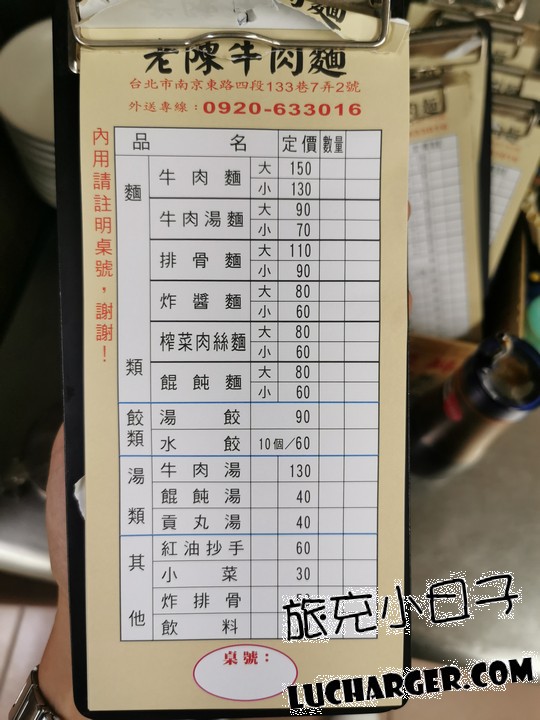 老陳牛肉麵
台北市南京東路四段133巷7弄2號
外送專線：0920-633016
內用請註明桌號，謝謝！
品名 定價 數量
麵類
牛肉麵 大 150
小 130
牛肉湯麵 大 90
小 70
排骨麵 大 110
小 90
炸醬麵 大 80
小 60
榨菜肉絲麵 大 80
小 60
餛飩麵 大 80
小 60
餃類
湯餃 90
水餃 10個/60
湯類
牛肉湯 130
餛飩湯 40
貢丸湯 40
其他
紅油抄手 60
小菜 30
炸排骨
飲料
桌號：
旅充小日子
LUCHARGER.COM